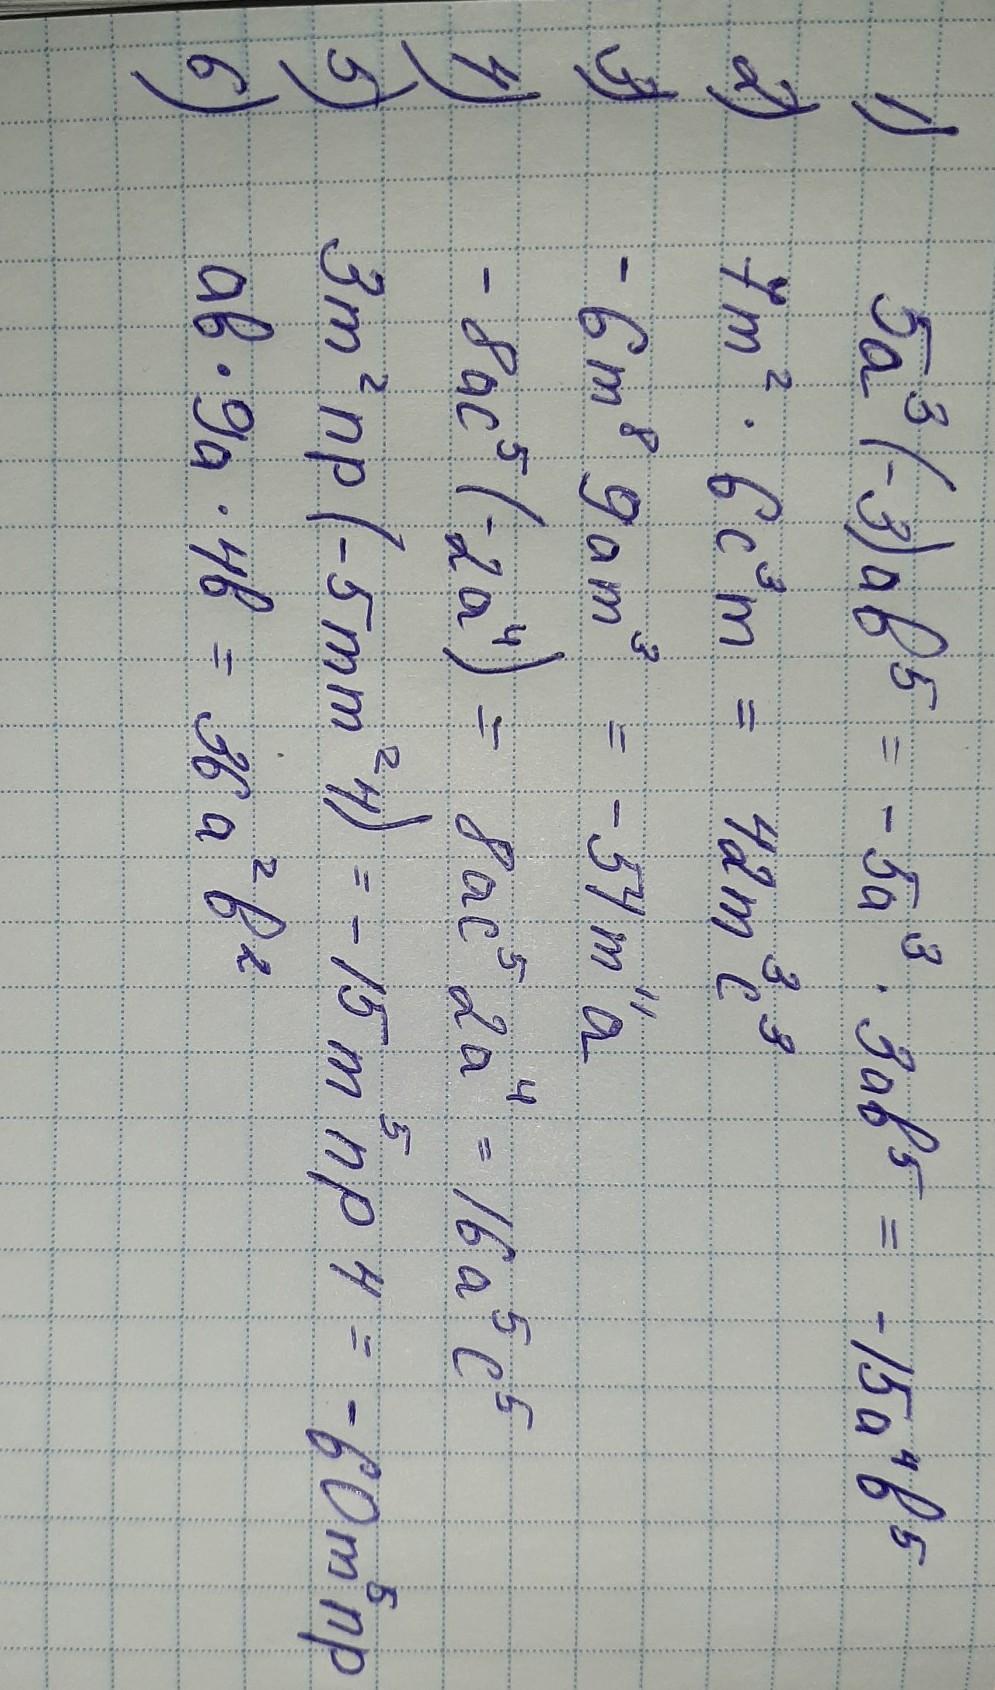 1) 5a³(-3)ab⁵ = -5a³ · 3ab⁵ = -15a⁴b⁵
2) 7m² · 6c³m = 42m³c³
3) -6m⁸ 9am³ = -54m¹¹a
4) -8ac⁵(-2a⁴) = 8ac⁵ 2a⁴ = 16a⁵c⁵
5) 3m²np(-5mm²4) = -15m⁵np4 = -60m⁵np
6) ab · 9a · 4b = 36a²b²